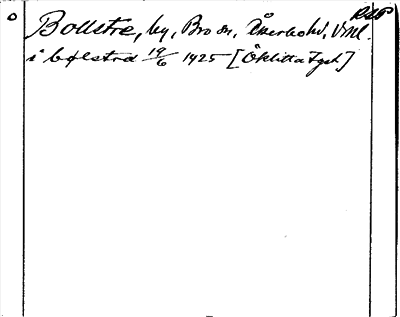 Bollstre, by, Bro sn, Åkerbo hd, Vml.
i bolstrd 19/6 1925 [Öklitta Fgsk]